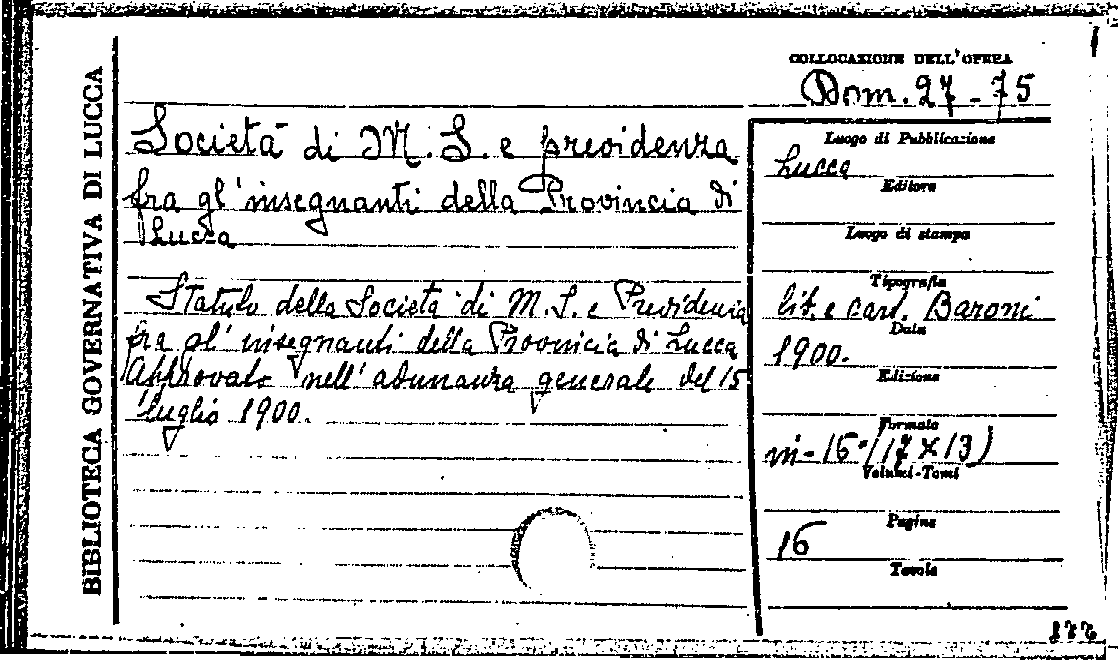 BIBLIOTECA GOVERNATIVA DI LUCCA
COLLOCAZIONE DELL'OPERA
Dom. 27-75
Società di M. S. e previdenza
fra gl'insegnanti della Provincia di
Lucca
Statuto della Società di M. S. e Previdenza
fra gl'insegnanti della Provincia di Lucca
Approvato nell'adunanza generale del 15
luglio 1900.
Luogo di Pubblicazione
Lucca
Editore
Luogo di stampa
Tipografia
lit. e cart. Baroni
Data
1900.
Edizione
Formato
in-16° (17×13)
Volumi-Tomi
Pagine
16
Tavole